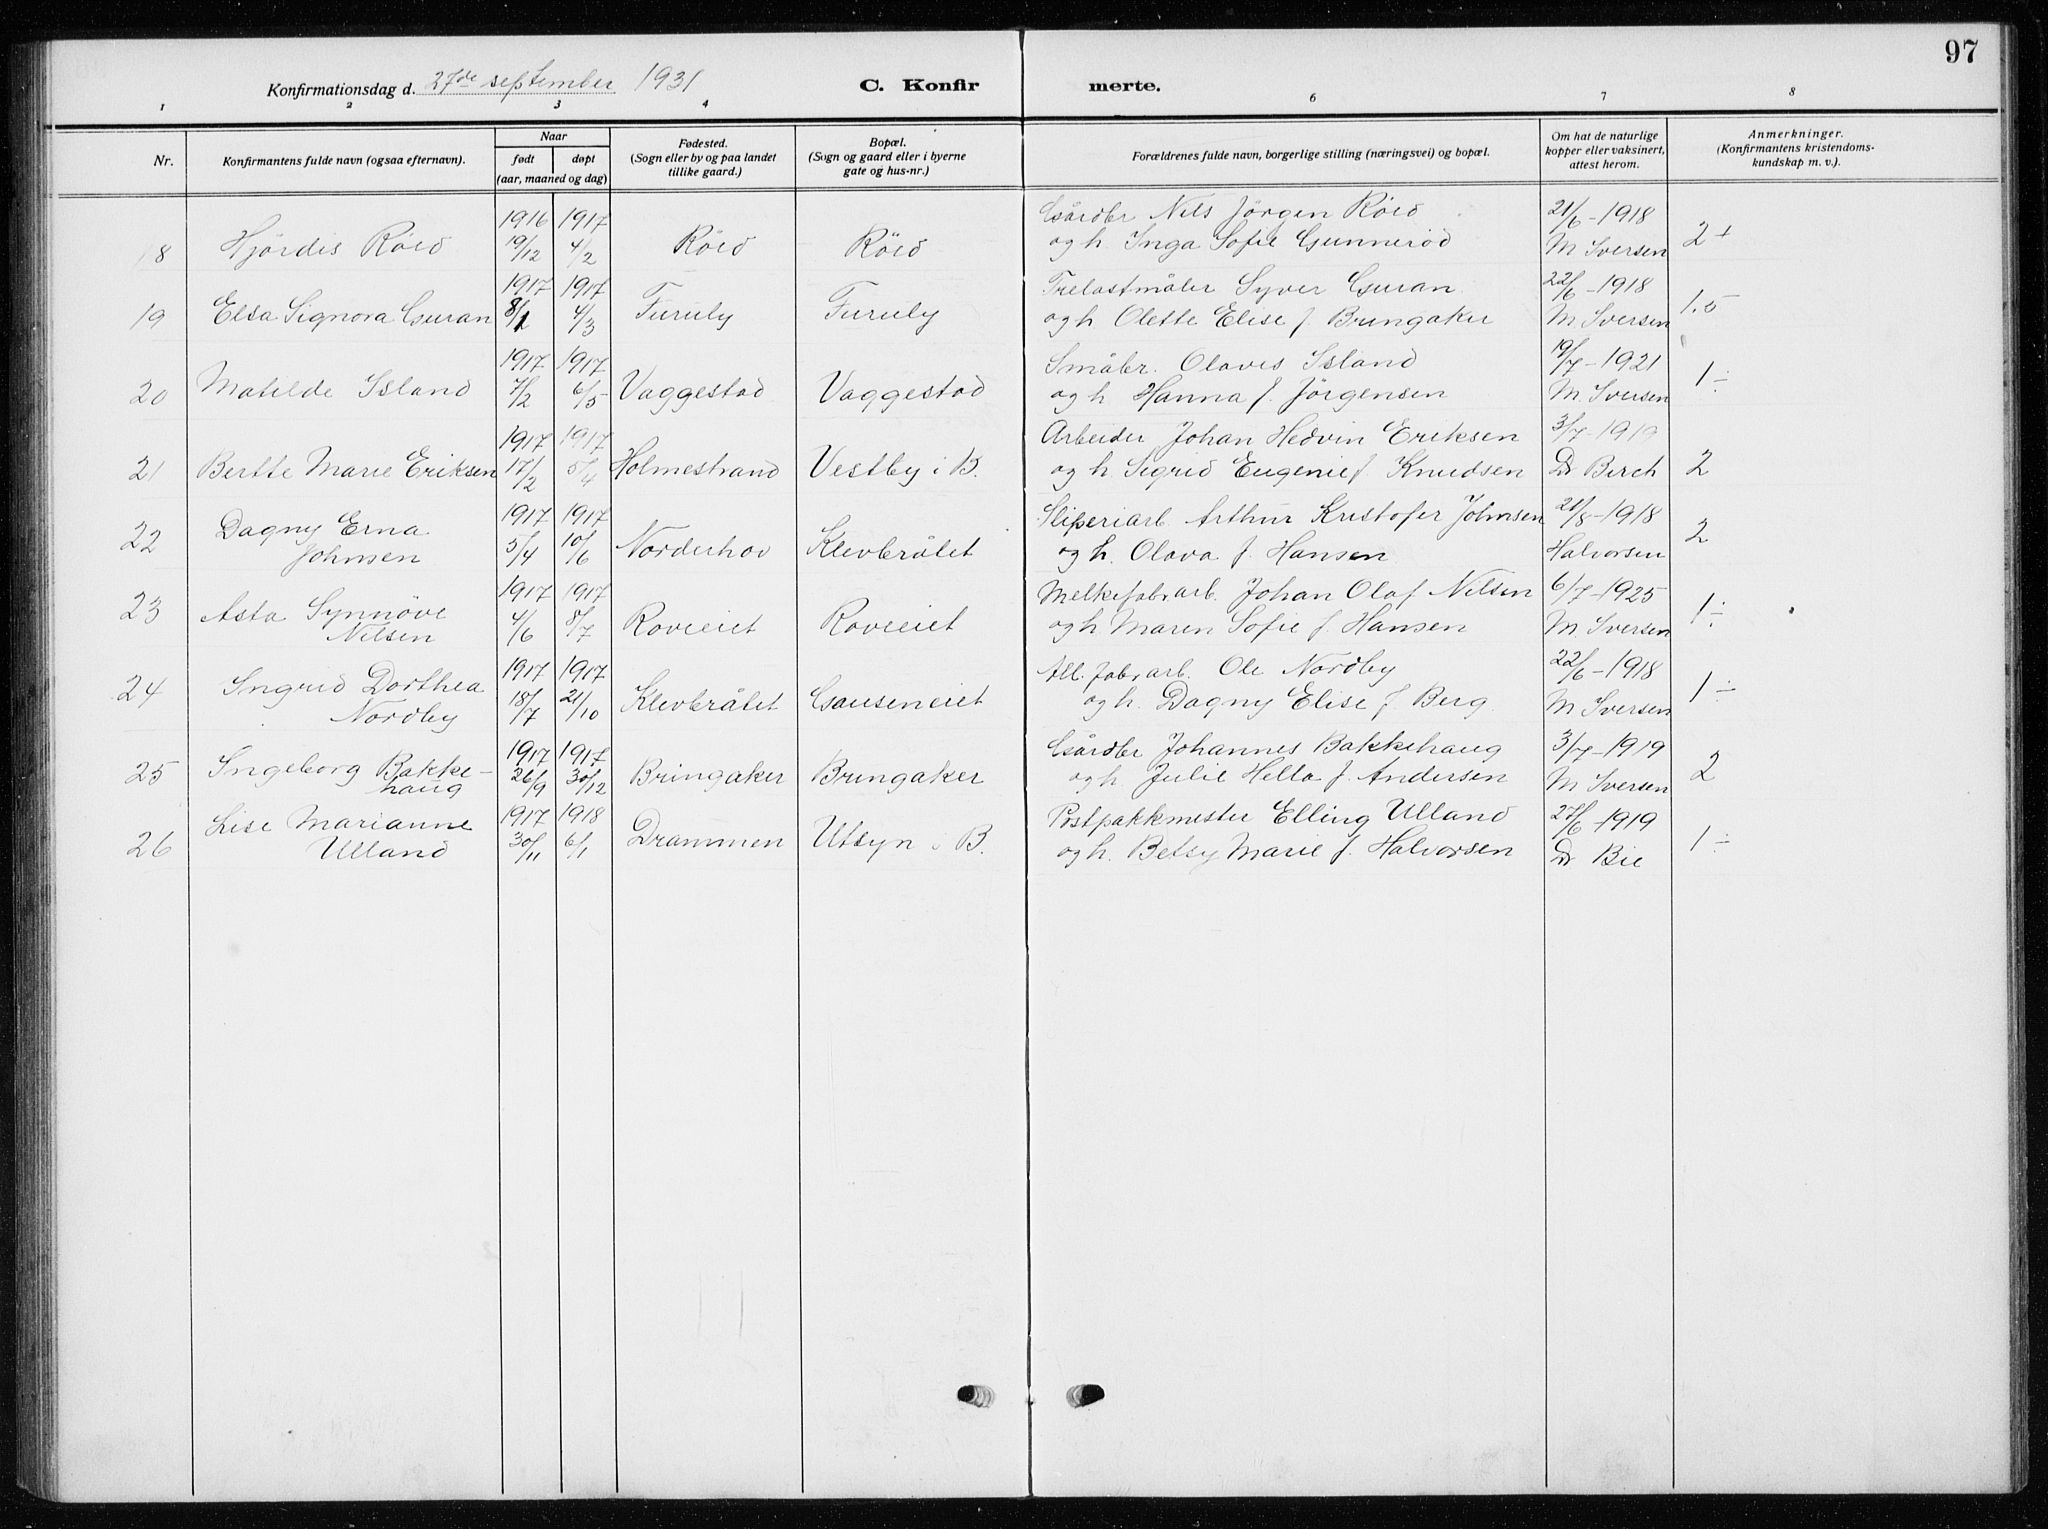 97
Konfirmationsdag d. 27de september 1931 C. Konfir merte.
1 2 3 4 6 7 8
Nr. Konfirmantens fulde navn (ogsaa efternavn). Naar født døpt (aar, maaned og dag) Fødested. (Sogn eller by og paa landet tillike gaard.) Bopæl. (Sogn og gaard eller i byerne gate og hus-nr.) Forældrenes fulde navn, borgerlige stilling (næringsvei) og bopæl. Om hat de naturlige kopper eller vaksinert, attest herom. Anmerkninger. (Konfirmantens kristendoms- kundskap m. v.).
1916 1917 Gårdbr Nils Jörgen Röed 21/6-1918
18 Hjördis Röed 19/12 4/2 Röed Röed og h. Inga Sofie Gunneröd M Iversen 2+
1917 1917 Trelastmåler Syver Guran 22/6-1918
19 Elsa Signora Guran 8/1 4/3 Furuly Furuly og h. Olette Elise f. Bringaker M Iversen 1.5
1917 1917 Småbr. Olaves Island 19/7-1921
20 Matilde Island 7/2 6/5 Vaggestad Vaggestad og h. Hanna f. Jörgensen M Iversen 1÷
1917 1917 Arbeider Johan Hedvin Eriksen 3/7-1919
21 Bertte Marie Eriksen 17/2 5/4 Holmestrand Vestby i B. og h. Sigrid Eugenie f. Knudsen Dr Birch 2
22 Dagny Erna 1917 1917 Sliperiarb. Arthur Kristofer Johnsen 21/8-1918
Johnsen 5/4 10/6 Norderhov Klevbråtet og h. Olava f. Hansen Halvorsen 2
23 Asta Synnöve 1917 1917 Melkefabr.arb. Johan Olaf Nilsen 6/7-1925
Nilsen 4/6 8/7 Rovieiet Rovieiet og h. Maren Sofie f. Hansen M Iversen 1÷
24 Ingrid Dorthea 1917 1917 All. fabr.arb. Ole Nordby 22/6-1918
Nordby 18/7 21/10 Klevbråtet Gauseneiet og h. Dagny Elise f Berg. M Iversen 1÷
25 Ingeborg Bakke- 1917 1917 Gårdbr Johannes Bakkehaug 3/7-1919
haug 26/9 30/12 Bringaker Bringaker og h. Julie Hella f. Andersen M Iversen 2
Lise Marianne 1917 1918 Postpakkmester Elling Ulland 27/6-1919
26 Ulland 30/11 6/1 Drammen Utsyn i B. og h. Betsy Marie f. Halvorsen Dr Bie 1÷